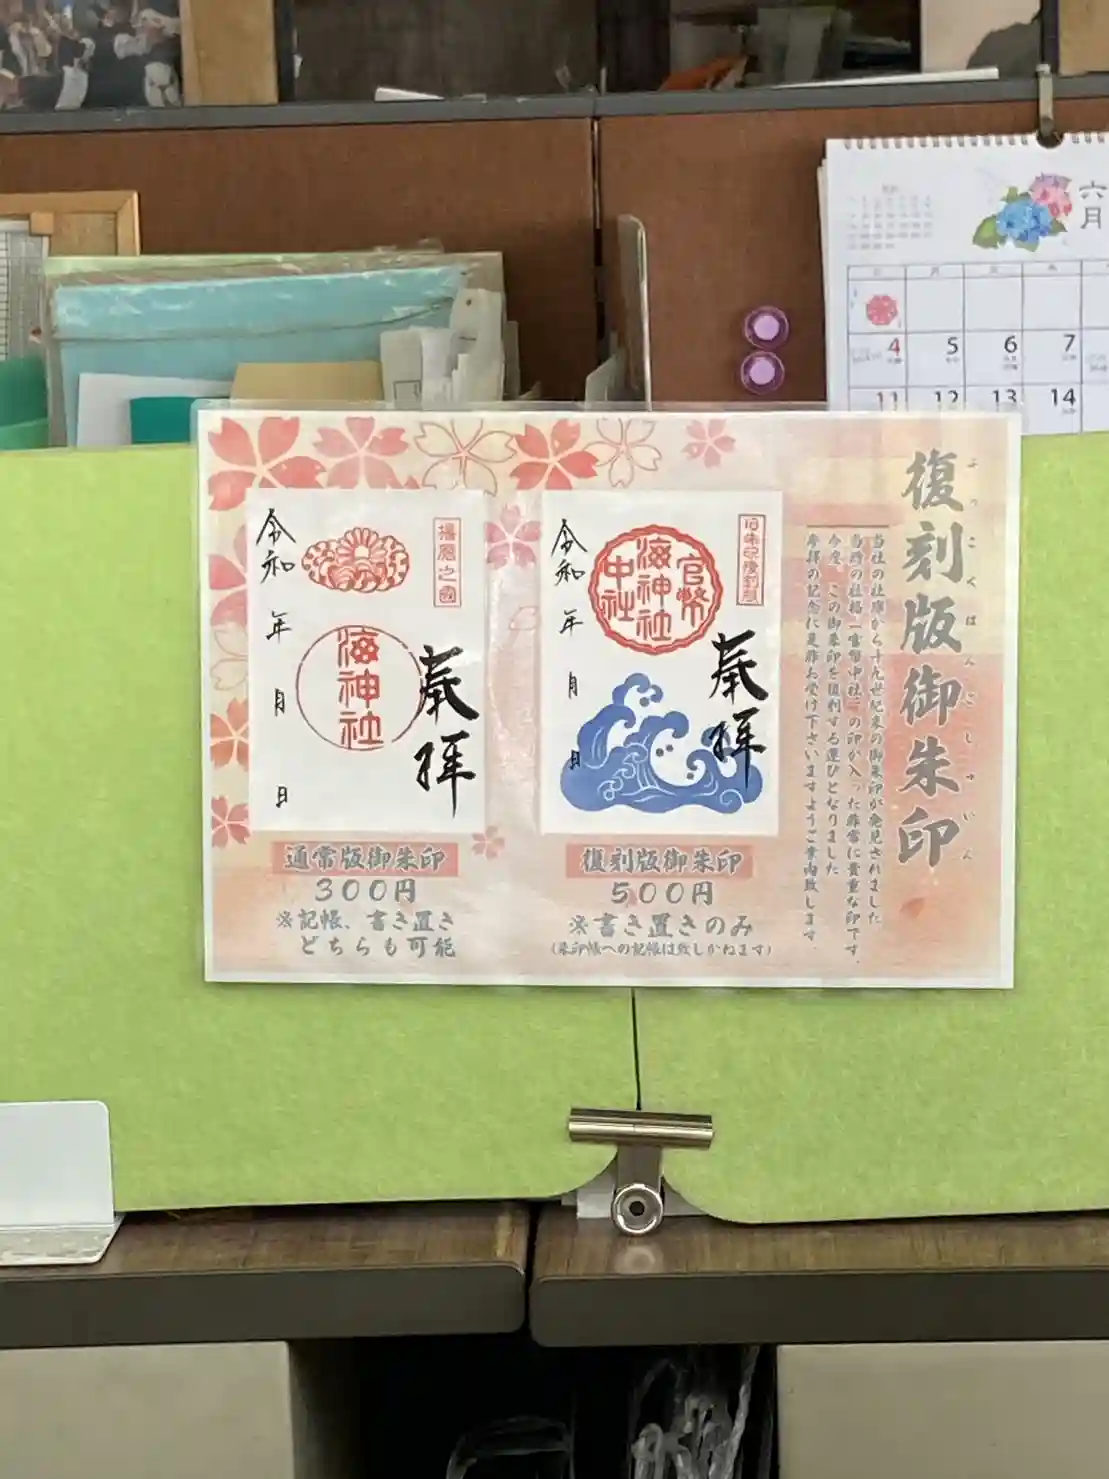 復刻版御朱印
ふっこくばんごしゅいん
当社の社庫から十九世紀末の御朱印が発見されました
当時の社格「官幣中社」の印が入った非常に貴重な印です。
今度、この御朱印を復刻する運びとなりました
参拝の記念に是非お受け下さいますようご案内致します。
旧朱印復刻版
官幣
海神社
中社
奉拝
令和 年 月 日
復刻版御朱印
500円
※書き置きのみ
(朱印帳への記帳は致しかねます)
海神社
奉拝
令和 年 月 日
通常版御朱印
300円
※記帳、書き置き
どちらも可能
六月
日 月 火 水
4 5 6 7
11 12 13 14